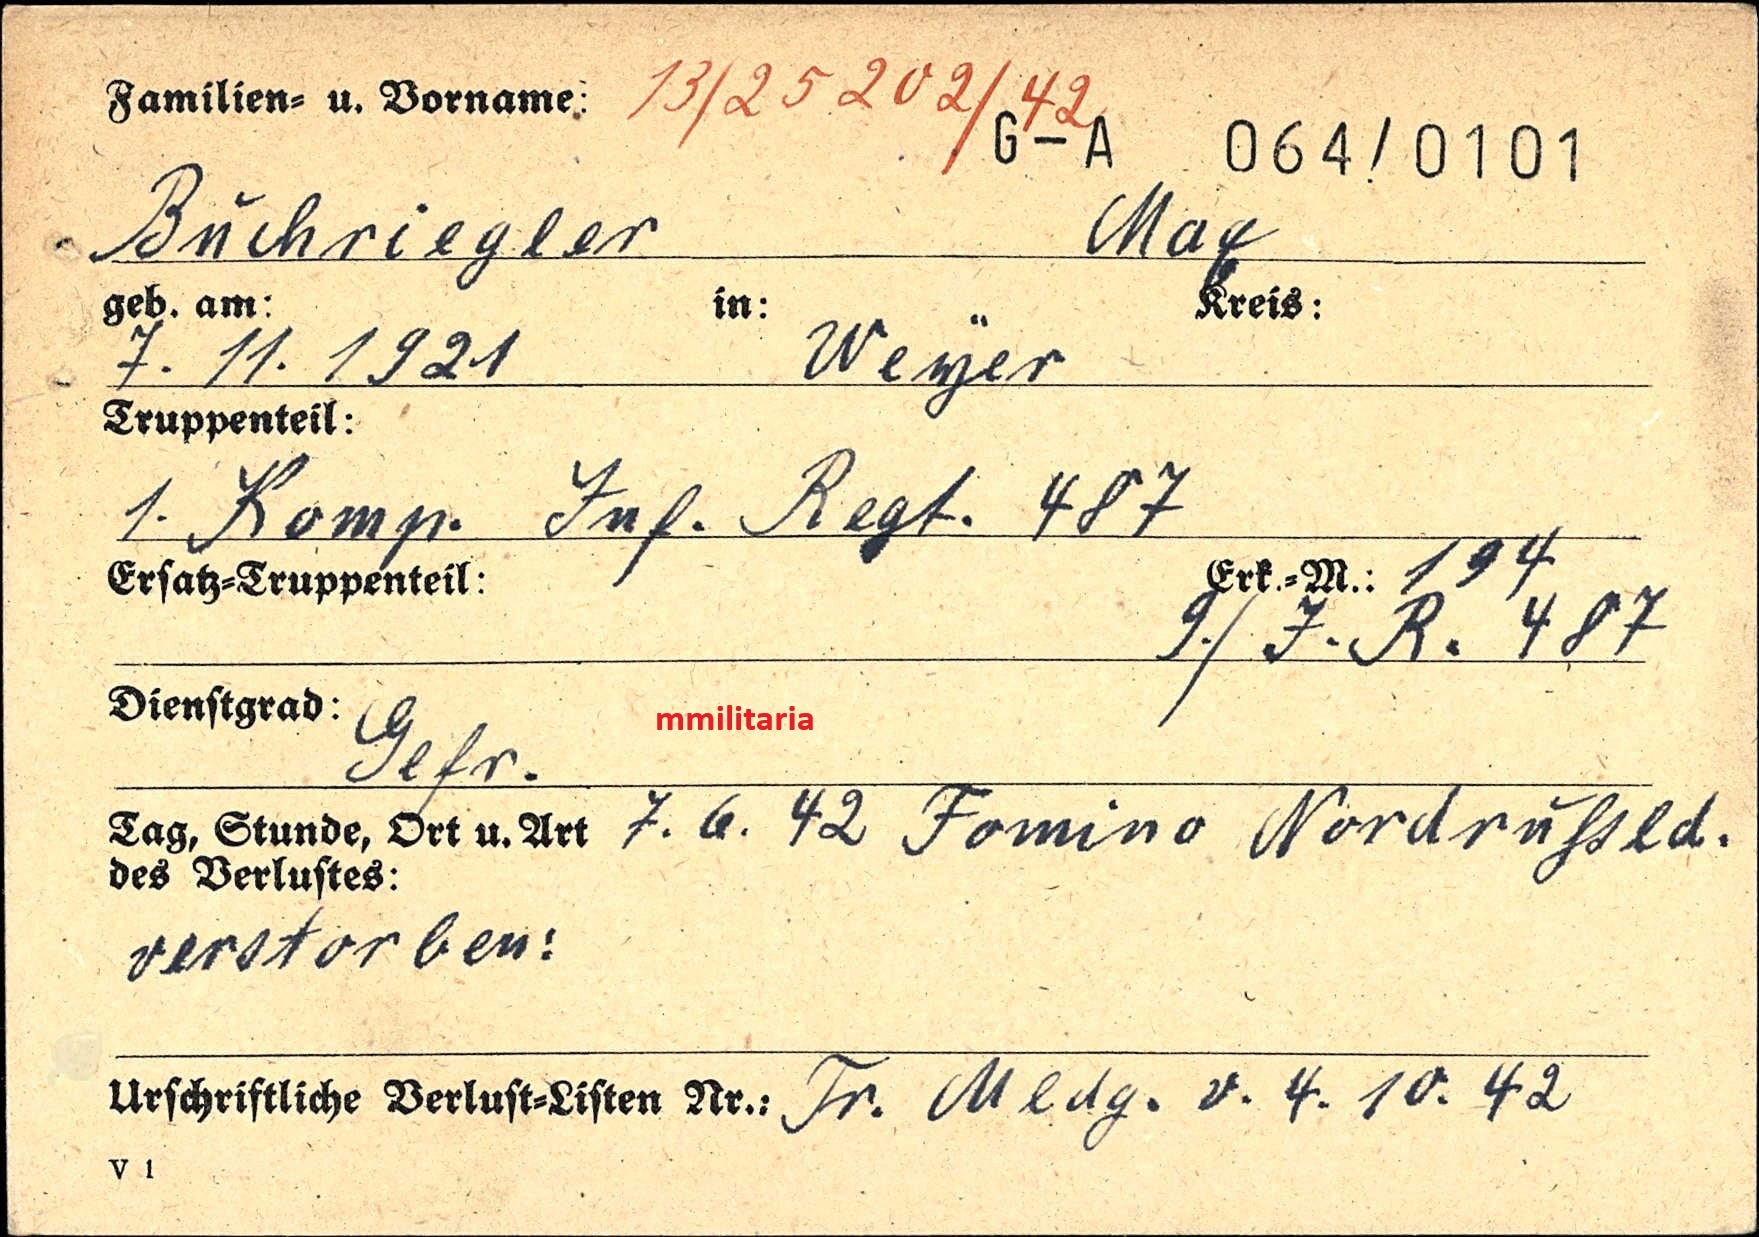 Familien- u. Vorname: 13/25202/42
G-A 064/0101
Buchriegler Max
geb. am: in: Kreis:
7. 11. 1921 Weÿer
Truppenteil:
1. Komp. Inf. Regt. 487
Ersatz-Truppenteil: Erk.-M.: 194
9./ I. R. 487
Dienstgrad: Gefr.
mmilitaria
Tag, Stunde, Ort u. Art 7. 6. 42 Fomino Nordrußld.
des Verlustes:
verstorben!
Urschriftliche Verlust-Listen Nr.: Tr. Meldg. v. 4. 10. 42
V 1